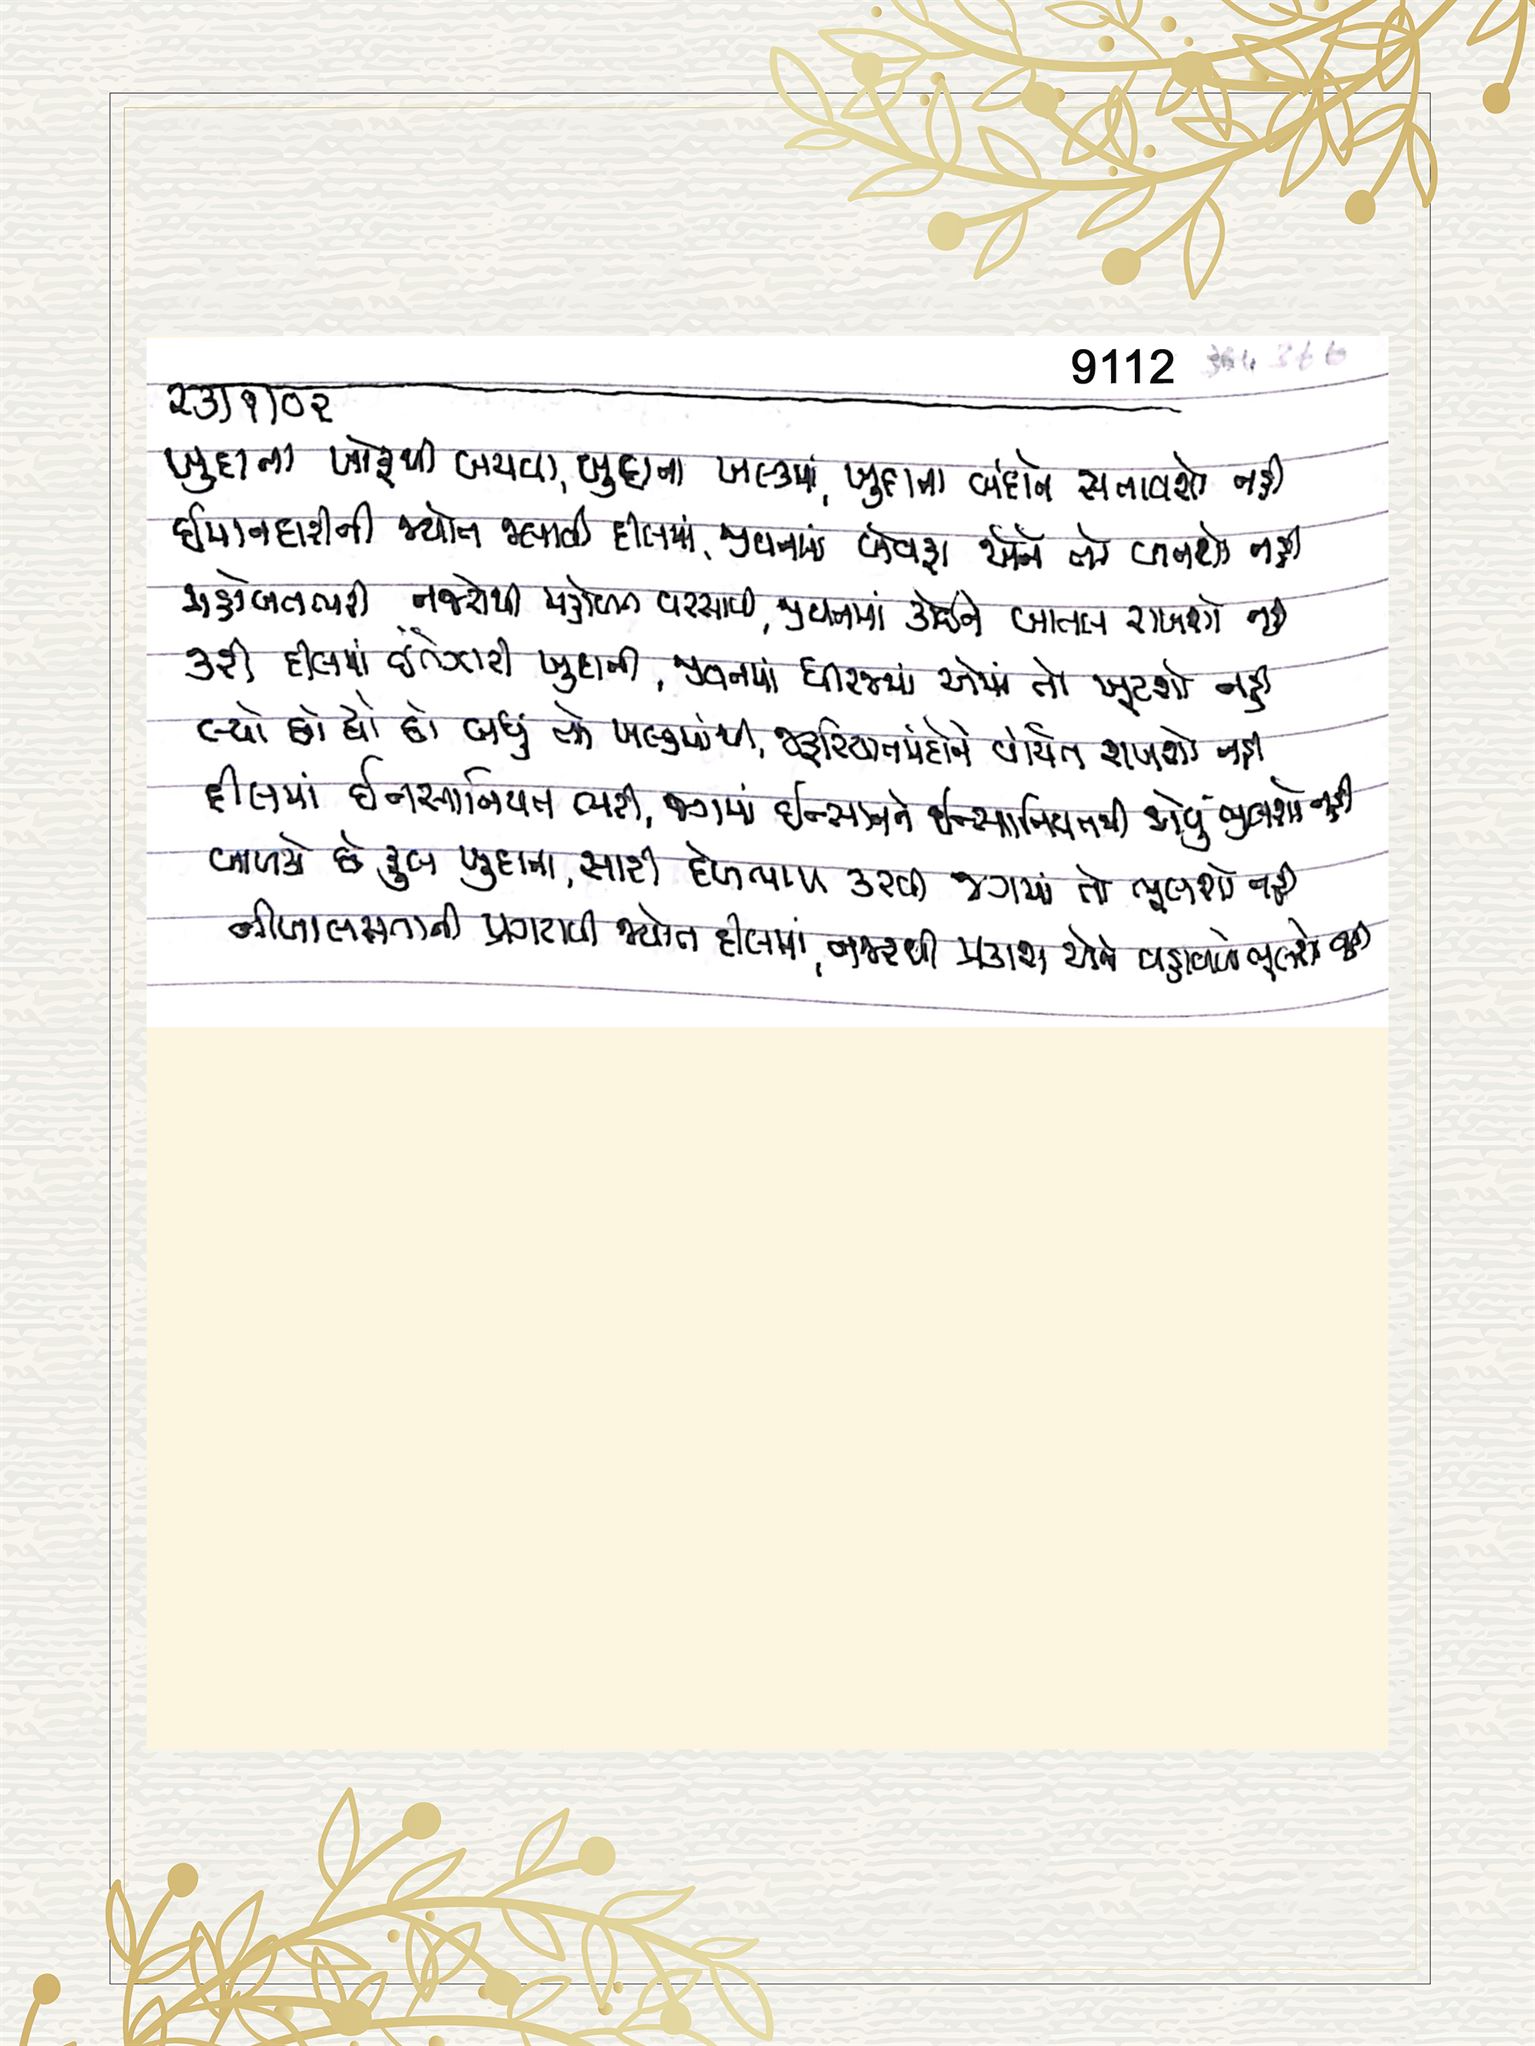 9112
૨૩/૧/૦૨
ખુદાના ખોફથી બચવા, ખુદાના ખલ્કમાં, ખુદાના બંદાને સતાવશો નહી
ઈમાનદારીની જ્યોત જલાવી દીલમાં, જીવનમાં બેવફા એને તો બનશો નહી
મહોબતભરી નજરોથી મહોબત વરસાવી, જીવનમાં કોઈને બાતલ રાખશો નહી
કરી દીલમાં ઈંતેઝારી ખુદાની, જીવનમાં ધીરજમાં એમાં તો ખૂટશો નહી
લ્યો છો દ્યો છો બધું તો ખલ્કમાંથી, જરૂરિયાતમંદોને વંચિત રાખશો નહી
દીલમાં ઈનસાનિયત ભરી, જગમાં ઈન્સાનને ઈન્સાનિયતથી જોવું ભુલશો નહી
બાળકો છે ફુલ ખુદાના, સારી દેખભાળ કરવી જગમાં તો ભૂલશો નહી
નીખાલસતાની પ્રગટાવી જ્યોત દીલમાં, નજરથી પ્રકાશ એનો ભૂલશો નહી